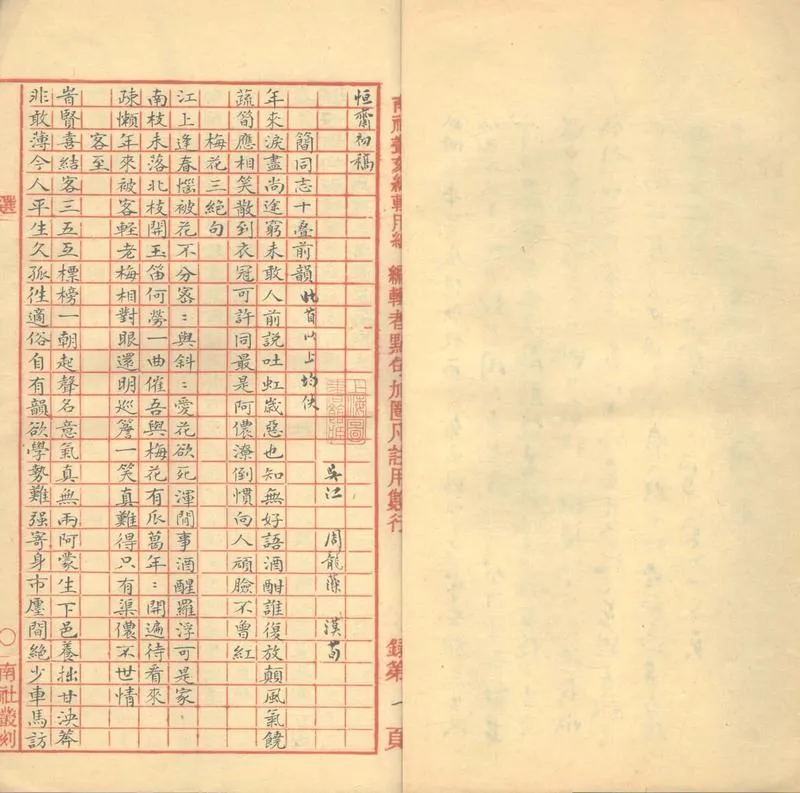 南社叢刻編輯用紙 編輯者點句加圈凡註用雙行 錄第一頁
恒齋初稿
吳江 周龍藻 漢荀
簡同志十疊前韻 此首以上均佚
年來淚盡尚途窮未敢人前說吐虹歲惡也知無好語酒酣誰復放顛風氣饒
蔬筍應相笑散到衣冠可許同最是阿儂潦倒慣向人頑臉不曾紅
梅花三絕句
江上逢春惱被花不分密〻與斜〻愛花欲死渾閒事酒醒羅浮可是家
南枝未落北枝開玉笛何勞一曲催吾與梅花有瓜葛年〻開遍待看來
疎懶年來被客輕老梅相對眼還明巡簷一笑真難得只有渠儂不世情
客至
昔賢喜結客三五互標榜一朝起聲名意氣真無兩阿蒙生下邑養拙甘泱莽
非敢薄今人平生久孤往適俗自有韻欲學勢難强寄身市廛間絕少車馬訪
選 〇 南社叢刻